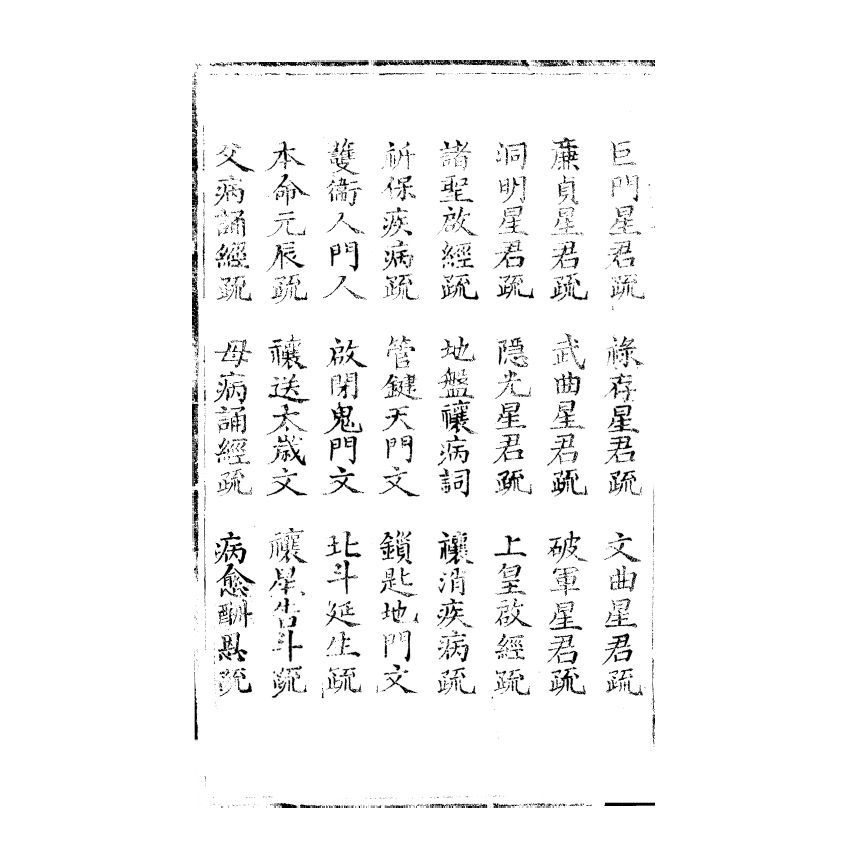 巨門星君疏　祿存星君疏　文曲星君疏
廉貞星君疏　武曲星君疏　破軍星君疏
洞明星君疏　隱光星君疏　上皇啟經疏
諸聖啟經疏　地盤禳病詞　禳消疾病疏
祈保疾病疏　管鍵天門文　鎖匙地門文
護衛人門人　啟閉鬼門文　北斗延生疏
本命元辰疏　禳送太歲文　禳星告斗疏
父病誦經疏　母病誦經疏　病愈酬恩疏